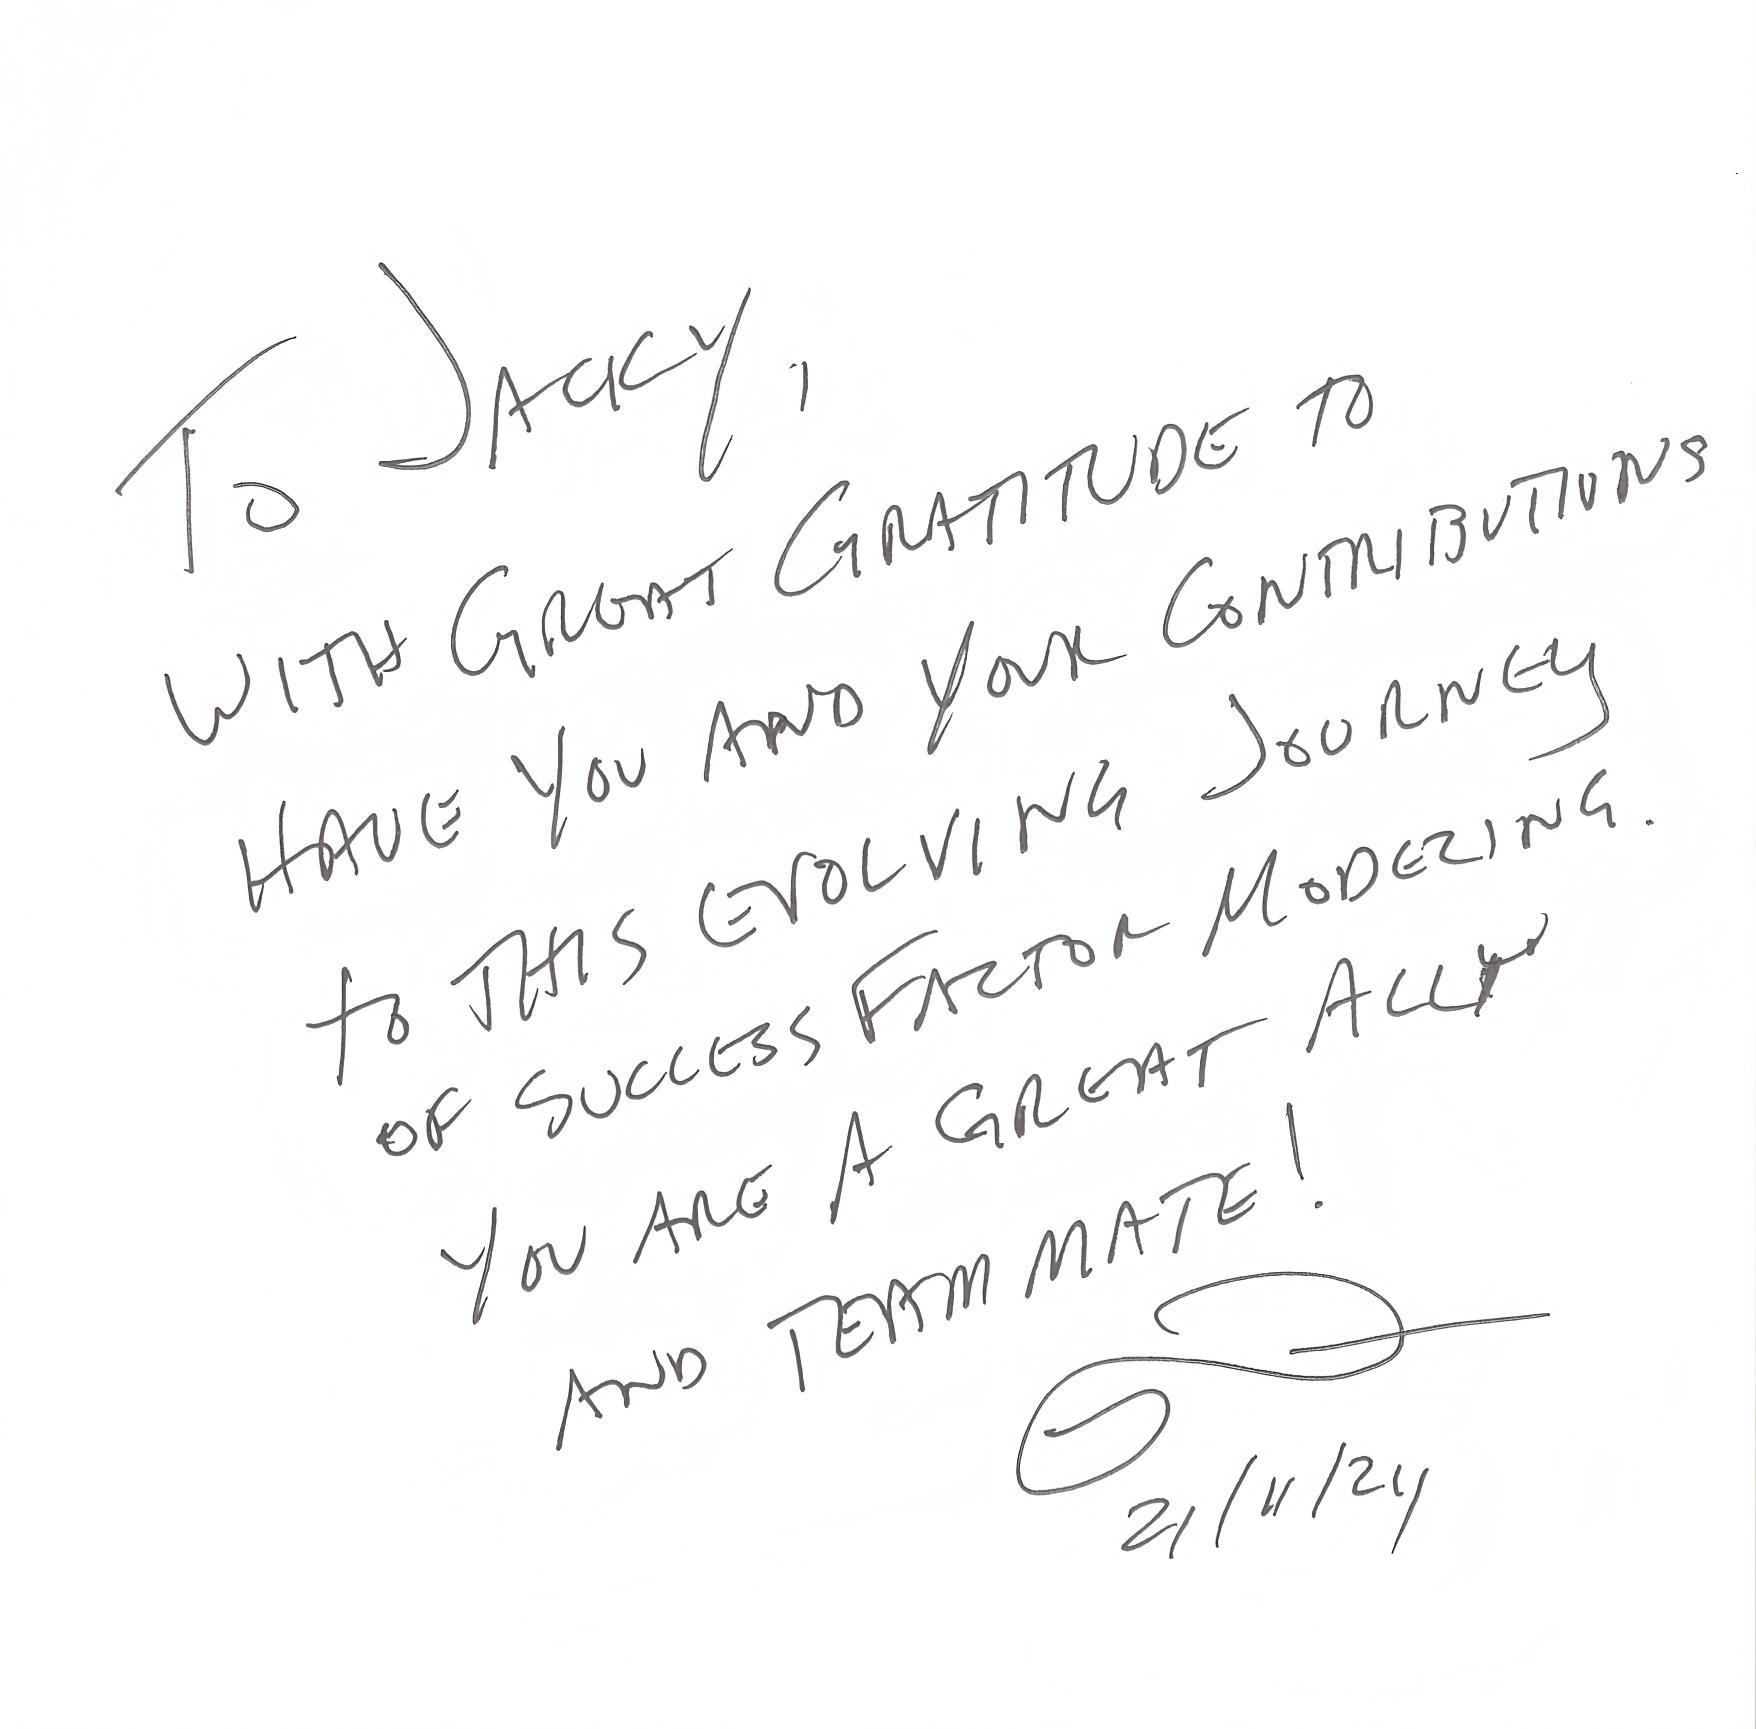 To JACKY,
WITH GREAT GRATITUDE TO
HAVE YOU AND YOUR CONTRIBUTIONS
to THIS EVOLVING JOURNEY
OF SUCCESS FACTOR MODELING.
YOU ARE A GREAT ALLY
AND TEAM MATE!
21/11/24